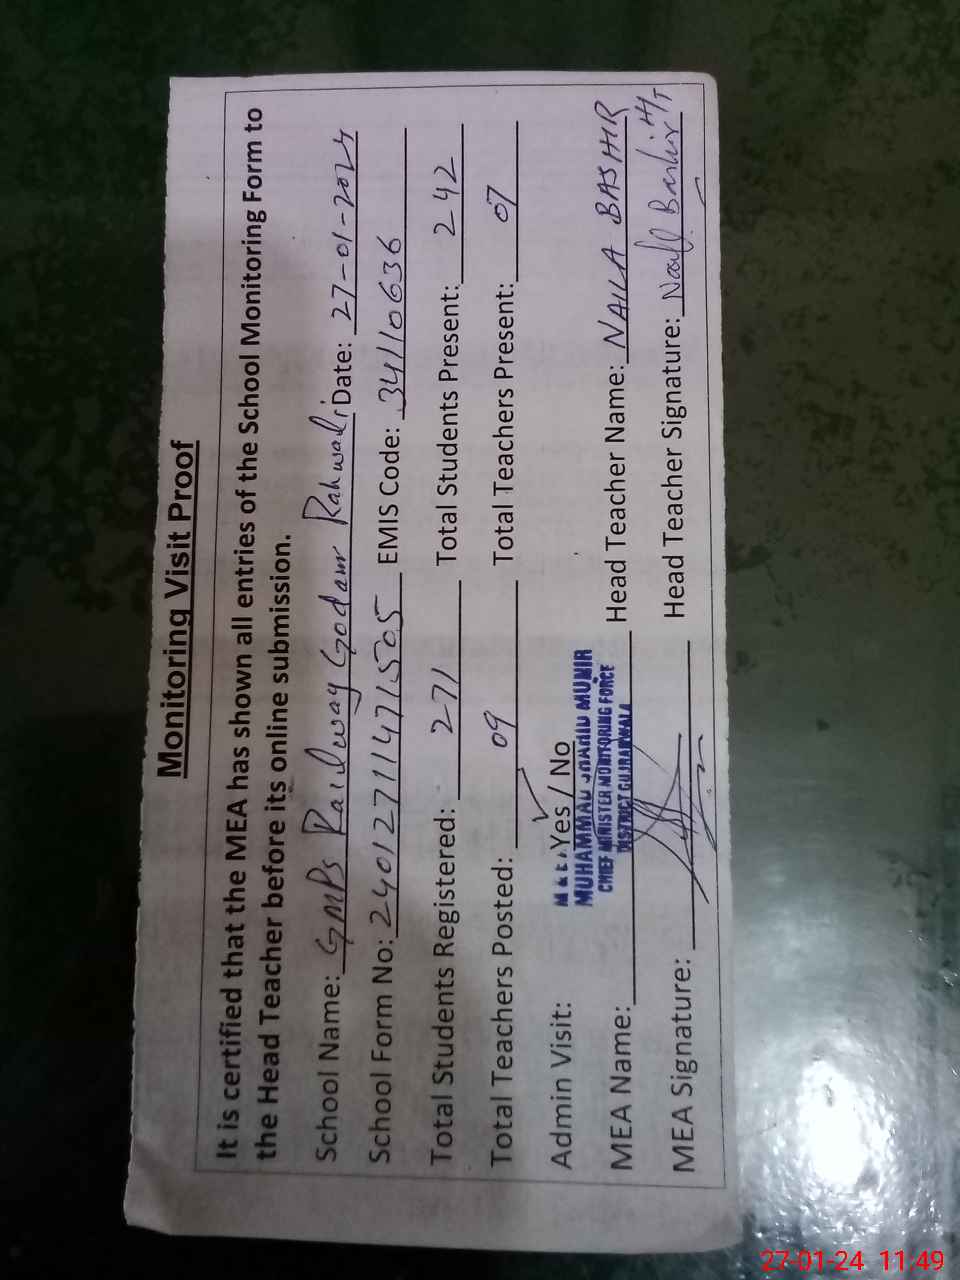 Monitoring Visit Proof
It is certified that the MEA has shown all entries of the School Monitoring Form to
the Head Teacher before its online submission.
School Name: GMPS Railway Godam Rahwali Date: 27-01-2024
School Form No: 24012711471505 EMIS Code: 34110636
Total Students Registered: 271 Total Students Present: 242
Total Teachers Posted: 09 Total Teachers Present: 07
Admin Visit: Yes / No
MUHAMMAD SHAHID MUNIR
CHIEF MINISTER MONITORING FORCE
DISTRICT GUJRANWALA
MEA Name: Head Teacher Name: NAILA BASHIR
MEA Signature: Head Teacher Signature: Bashir H/T
27-01-24 11:49